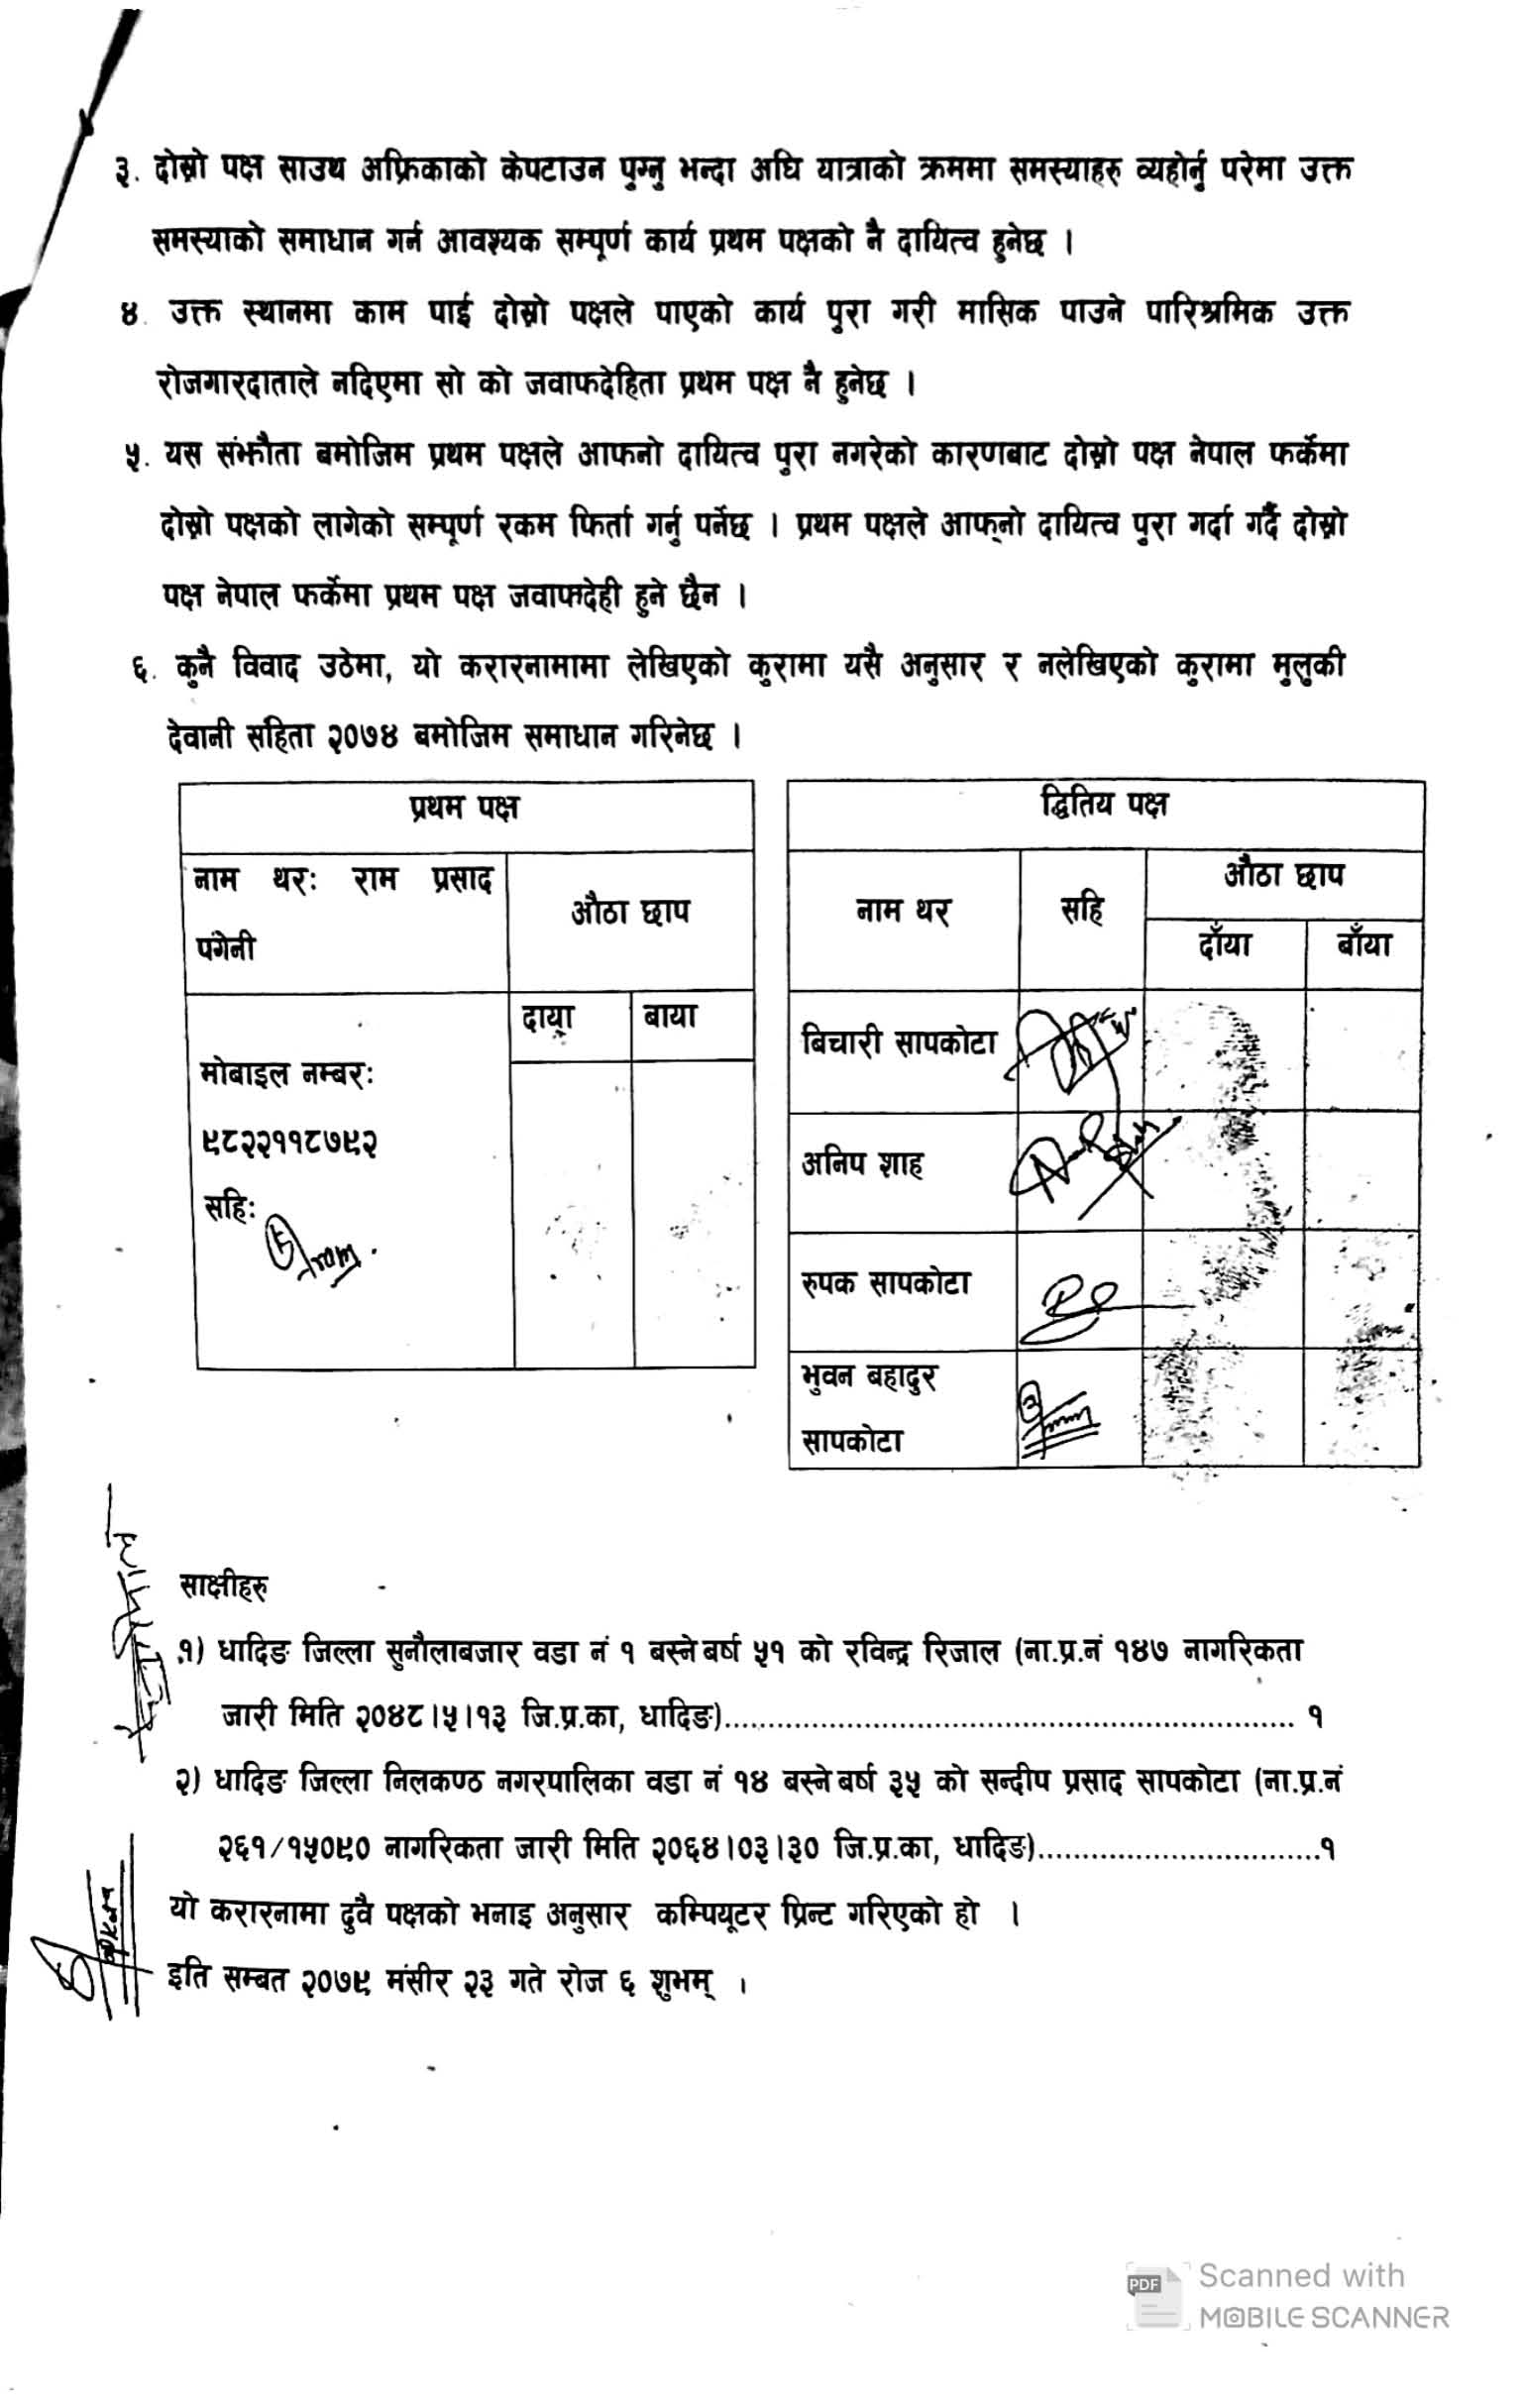 ३. दोस्रो पक्ष साउथ अफ्रिकाको केपटाउन पुग्नु भन्दा अघि यात्राको क्रममा समस्याहरु व्यहोर्नु परेमा उक्त
समस्याको समाधान गर्न आवश्यक सम्पूर्ण कार्य प्रथम पक्षको नै दायित्व हुनेछ ।
४. उक्त स्थानमा काम पाई दोस्रो पक्षले पाएको कार्य पुरा गरी मासिक पाउने पारिश्रमिक उक्त
रोजगारदाताले नदिएमा सो को जवाफदेहिता प्रथम पक्ष नै हुनेछ ।
५. यस संझौता बमोजिम प्रथम पक्षले आफनो दायित्व पुरा नगरेको कारणबाट दोस्रो पक्ष नेपाल फर्केमा
दोस्रो पक्षको लागेको सम्पूर्ण रकम फिर्ता गर्नु पर्नेछ । प्रथम पक्षले आफ्नो दायित्व पुरा गर्दा गर्दै दोस्रो
पक्ष नेपाल फर्केमा प्रथम पक्ष जवाफदेही हुने छैन ।
६. कुनै विवाद उठेमा, यो करारनामामा लेखिएको कुरामा यसै अनुसार र नलेखिएको कुरामा मुलुकी
देवानी सहिता २०७४ बमोजिम समाधान गरिनेछ ।
प्रथम पक्ष
नाम थरः राम प्रसाद
पंगेनी
औठा छाप
दाया
बाया
मोबाइल नम्बरः
९८२२११८७९२
सहिः
द्वितिय पक्ष
नाम थर
सहि
औठा छाप
दाँया
बाँया
बिचारी सापकोटा
अनिप शाह
रुपक सापकोटा
भुवन बहादुर
सापकोटा
साक्षीहरु
१) धादिङ जिल्ला सुनौलाबजार वडा नं १ बस्ने बर्ष ५१ को रविन्द्र रिजाल (ना.प्र.नं १४७ नागरिकता
जारी मिति २०४८।५।१३ जि.प्र.का, धादिङ)................................................................ १
२) धादिङ जिल्ला निलकण्ठ नगरपालिका वडा नं १४ बस्ने बर्ष ३५ को सन्दीप प्रसाद सापकोटा (ना.प्र.नं
२६१/१५०९० नागरिकता जारी मिति २०६४।०३।३० जि.प्र.का, धादिङ)................................१
यो करारनामा दुवै पक्षको भनाइ अनुसार कम्पियूटर प्रिन्ट गरिएको हो ।
इति सम्बत २०७९ मंसीर २३ गते रोज ६ शुभम् ।
PDF
Scanned with
MOBILE SCANNER